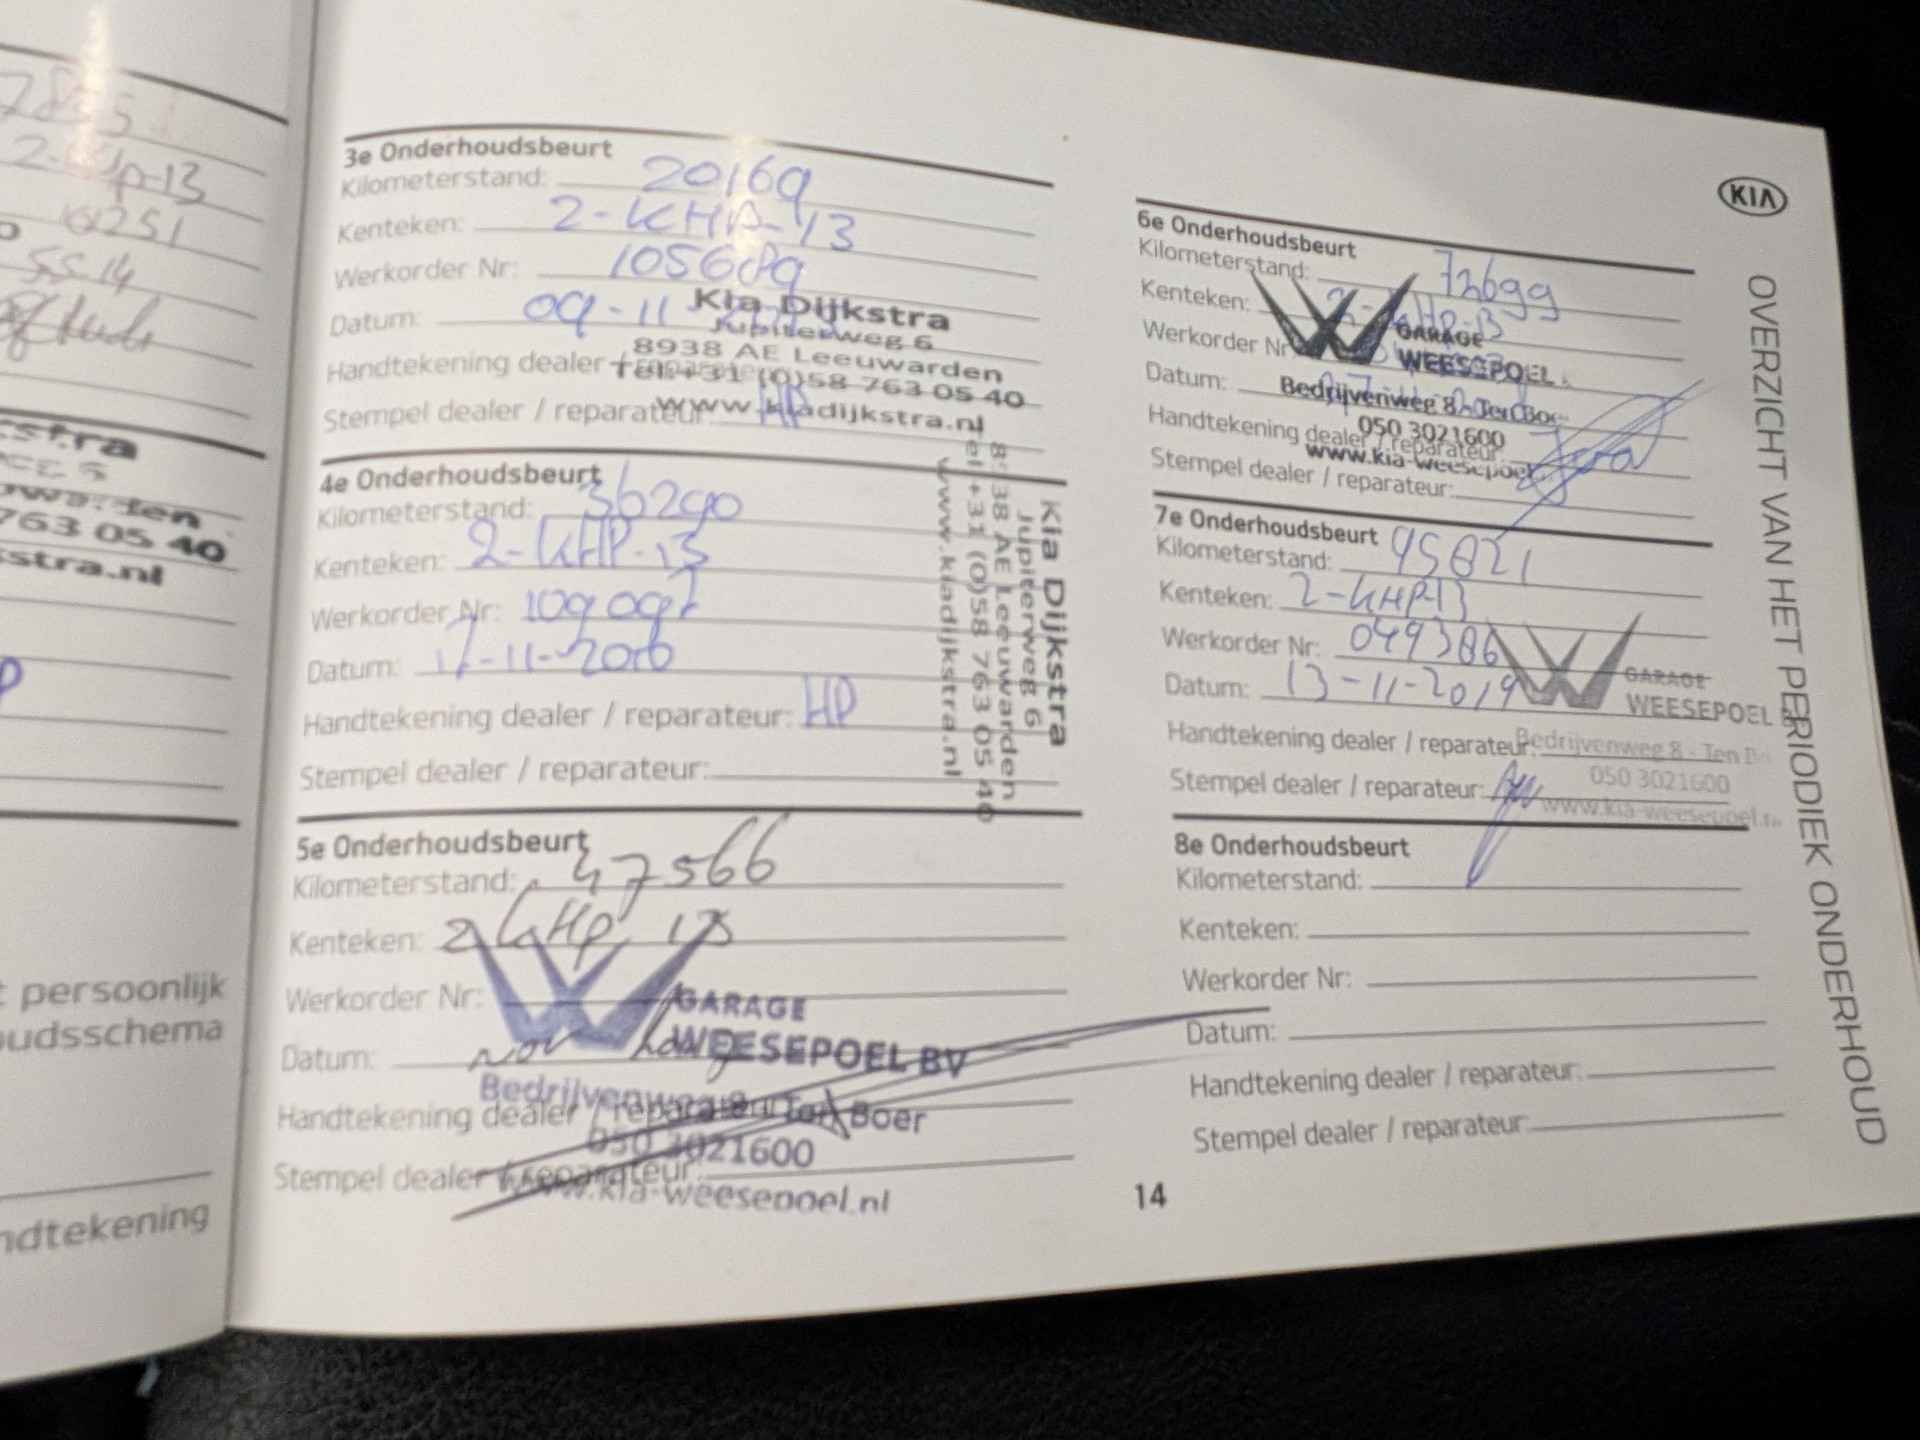 2-KHP-13
6251
SS 14
kstra
weg 6
763 05 40
kstra.nl
persoonlijk
oudsschema
ndtekening
3e Onderhoudsbeurt
Kilometerstand: 20169
Kenteken: 2-KHP-13
Werkorder Nr:
Datum: 09-11
Handtekening dealer / reparateur:
Stempel dealer / reparateur: HP
Kia Dijkstra
Jupiterweg 6
8938 AE Leeuwarden
Tel +31 (0)58 763 05 40
www.kiadijkstra.nl
4e Onderhoudsbeurt
Kilometerstand: 36290
Kenteken: 2-KHP-13
Werkorder Nr: 109097
Datum: 17-11-2016
Handtekening dealer / reparateur: HP
Stempel dealer / reparateur:
Kia Dijkstra
Jupiterweg 6
8938 AE Leeuwarden
Tel +31 (0)58 763 05 40
www.kiadijkstra.nl
5e Onderhoudsbeurt
Kilometerstand: 47566
Kenteken: 2 KHP 13
Werkorder Nr:
Datum: nov
Handtekening dealer / reparateur:
Stempel dealer / reparateur:
GARAGE
WEESEPOEL BV
Bedrijvenweg 8 - Ten Boer
050 3021600
www.kia-weesepoel.nl
KIA
6e Onderhoudsbeurt
Kilometerstand: 72699
Kenteken: 2-KHP-13
Werkorder Nr:
Datum:
Handtekening dealer / reparateur:
Stempel dealer / reparateur:
GARAGE
WEESEPOEL
Bedrijvenweg 8 - Ten Boe
050 3021600
www.kia-weesepoel
7e Onderhoudsbeurt
Kilometerstand: 95821
Kenteken: 2-KHP-13
Werkorder Nr: 049386
Datum: 13-11-2019
Handtekening dealer / reparateur:
Stempel dealer / reparateur:
GARAGE
WEESEPOEL B
Bedrijvenweg 8 - Ten Bo
050 3021600
www.kia-weesepoel.n
8e Onderhoudsbeurt
Kilometerstand:
Kenteken:
Werkorder Nr:
Datum:
Handtekening dealer / reparateur:
Stempel dealer / reparateur:
OVERZICHT VAN HET PERIODIEK ONDERHOUD
14